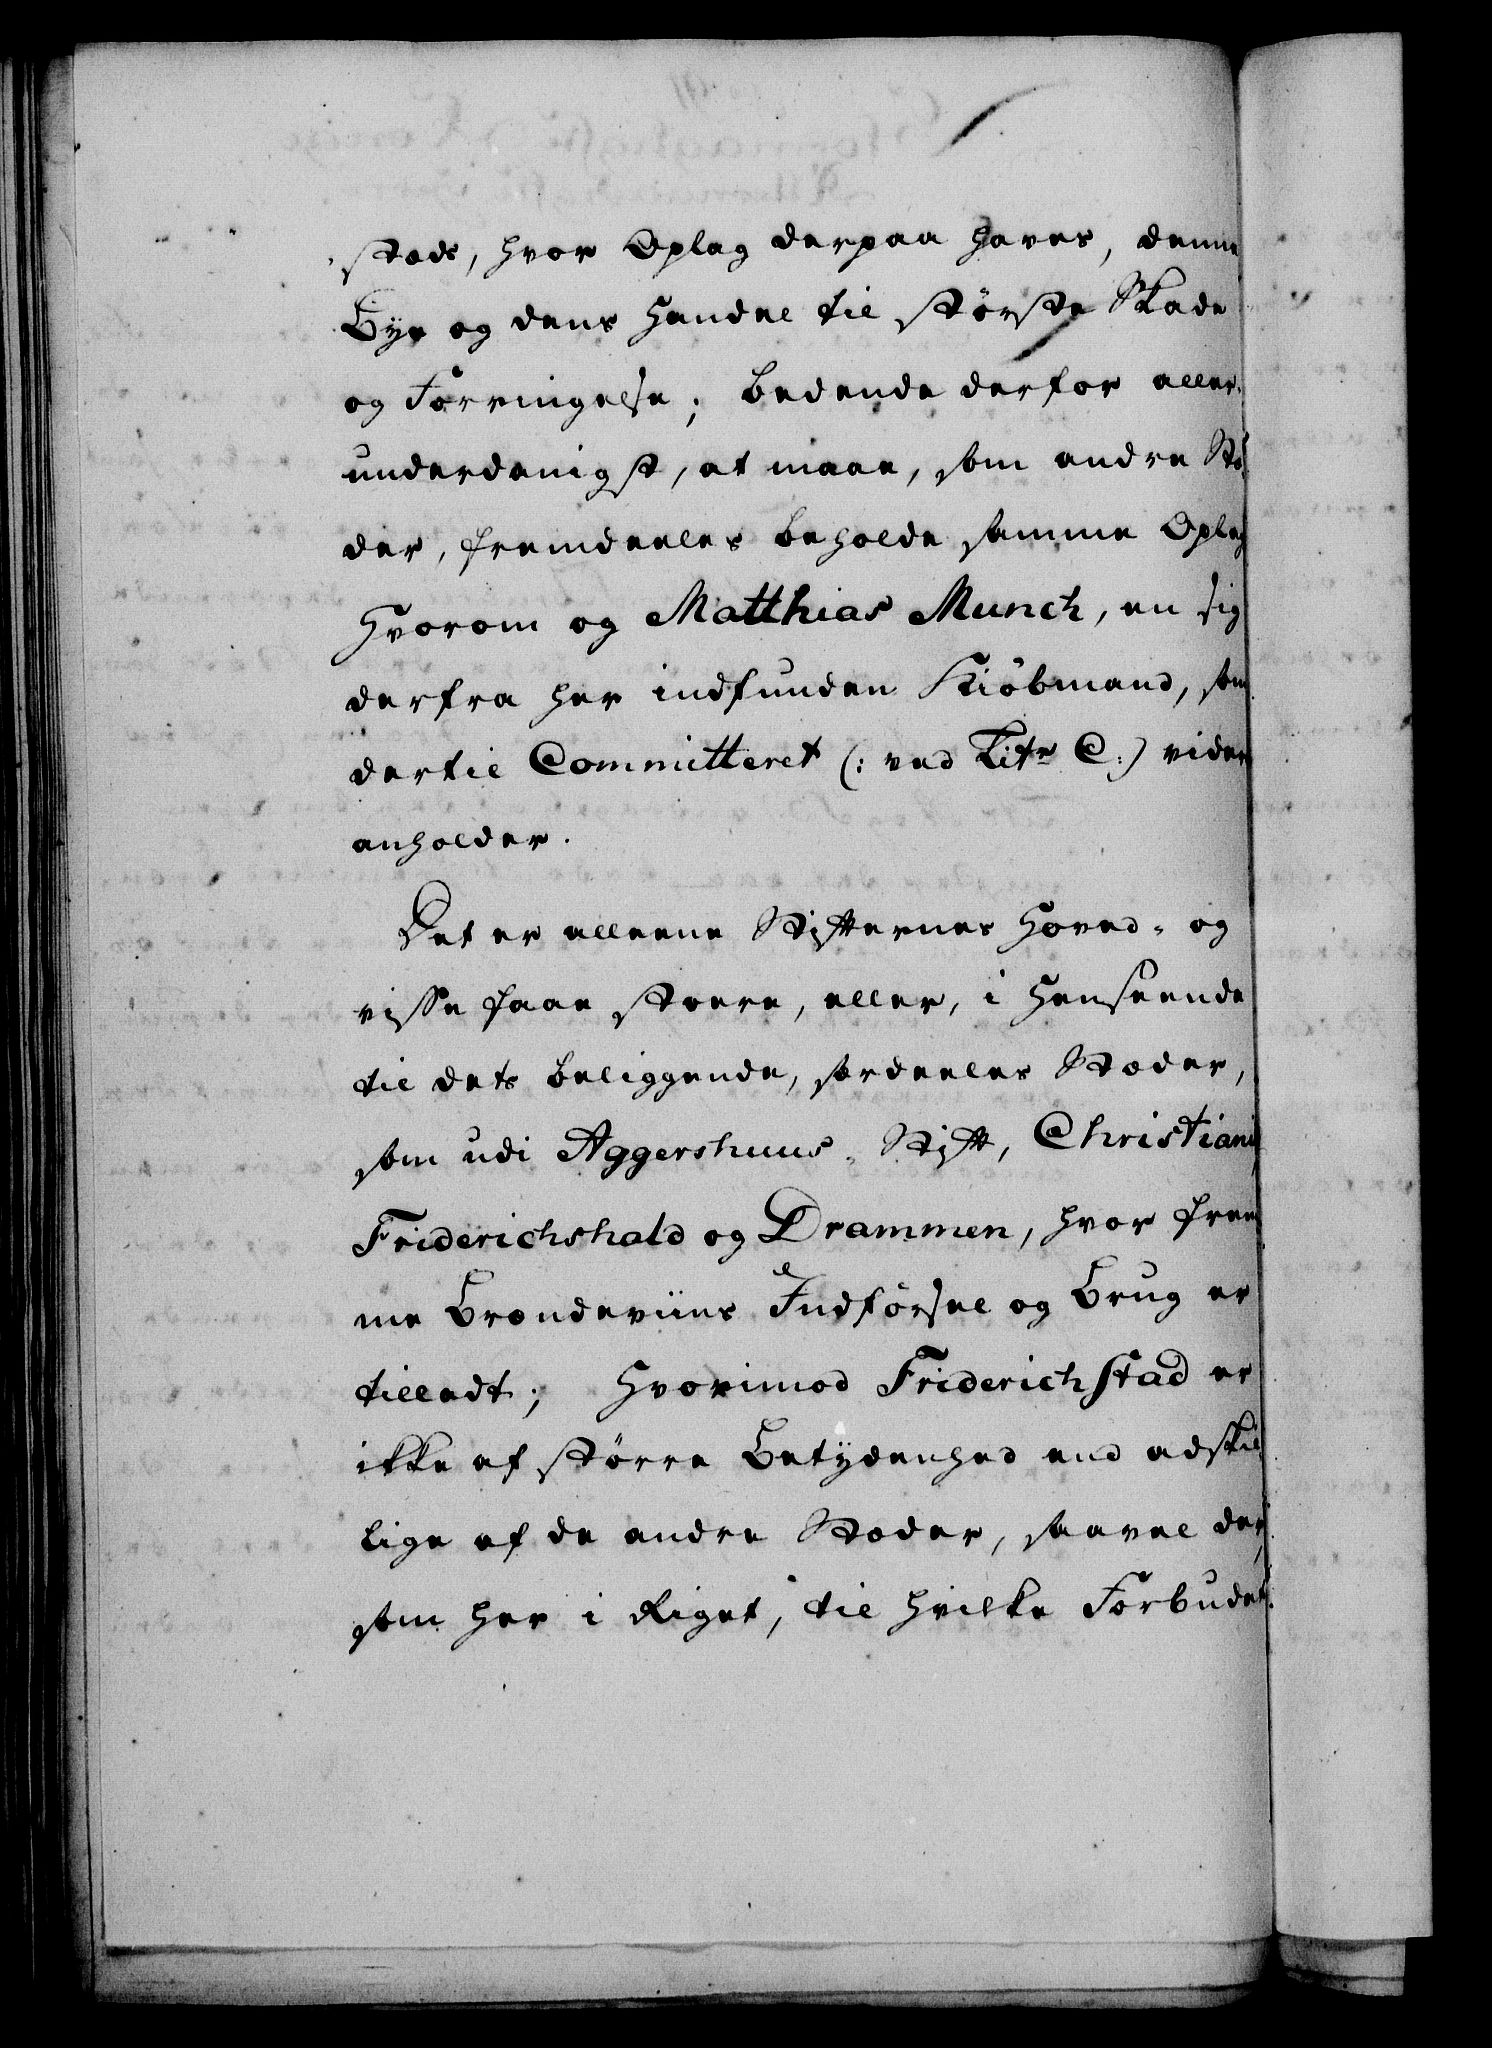 stæds, hvor Oplag derpaa haves, denne
Bye og dens Handel til største Skade
og Forringelse; bedende derfor aller-
underdanigst, at maae, som andre Stæ-
der, fremdeeles beholde samme Oplag
hvorom og Matthias Munch, en sig
derfra her indfunden Kiøbmand, som
dertil Committeret (: ved Litr C:) videre
anholder.
Det er alleene Stifternes Hoved- og
visse faae større, eller, i Henseende
til dets beliggende, særdeeles Stæder,
som udi Aggershuus-Stift, Christiania
Friderichshald og Drammen, hvor frem
me Brændeviins Indførsel og Brug er
tilladt; hvorimod Friderichstad er
ikke af større Betydenhed end adskil
lige af de andre Stæder, saavel der,
som her i Riget, til hvilke Forbudet